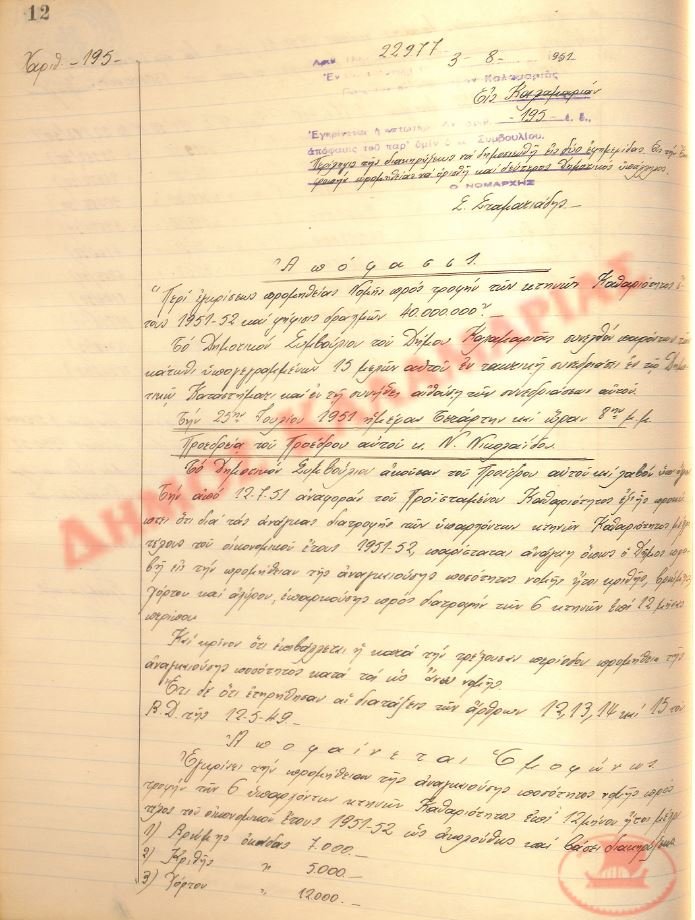 12
Αριθ. - 195 -
22977 3 - 8 - 1951
Ἐν Καλαμαριᾶς
Εἰς Καλαμαριάν
Ἐγκρίνεται ἡ 195 ἐ. ἔ.
ἀπόφασις τοῦ παρ' ὑμῖν Δ. Συμβουλίου.
Περίληψις τῆς διακηρύξεως νὰ δημοσιευθῇ εἰς δύο ἐφημερίδας. Εἰς τὴν
προμηθείας νὰ ὁρισθῇ καὶ δεύτερος Δημοτικὸς ὑπάλληλος.
Ο ΝΟΜΑΡΧΗΣ
Σ. Σταματιάδης
Ἀπόφασις.
"Περὶ ἐγκρίσεως προμηθείας Νομῆς πρὸς τροφὴν τῶν κτηνῶν Καθαριότητος ἔ-
τους 1951-52 καὶ ψήφισις δραχμῶν 40.000.000".
Τὸ Δημοτικὸν Συμβούλιον τοῦ Δήμου Καλαμαριᾶς συνελθὸν παρόντων τῶν
κάτωθι ὑπογεγραμμένων 15 μελῶν αὐτοῦ ἐν τακτικῇ συνεδριάσει ἐν τῷ Δημο-
τικῷ Καταστήματι καὶ ἐν τῇ συνήθει αἰθούσῃ τῶν συνεδριάσεων αὐτοῦ.
Τὴν 25ην Ἰουλίου 1951 ἡμέραν Τετάρτην καὶ ὥραν 8ην μ.μ.
Προεδρεία τοῦ Προέδρου αὐτοῦ κ. Ν. Νικολαΐδου.
Τὸ Δημοτικὸν Συμβούλιον ἀκοῦσαν τοῦ Προέδρου αὐτοῦ καὶ λαβὸν ὑπ' ὄψιν
Τὴν ἀπὸ 12.7.51 ἀναφορὰν τοῦ Προϊσταμένου Καθαριότητος ἐξ ἧς προκύ-
πτει ὅτι διὰ τὰς ἀνάγκας διατροφῆς τῶν ὑπαρχόντων κτηνῶν Καθαριότητος μέχρι
τέλους τοῦ οἰκονομικοῦ ἔτους 1951-52, παρίσταται ἀνάγκη ὅπως ὁ Δῆμος προ-
βῇ εἰς τὴν προμήθειαν τῆς ἀναγκαιούσης ποσότητος νομῆς ἤτοι κριθῆς, βρώμης
χόρτου καὶ ἀχύρου, ἐπαρκούσης πρὸς διατροφὴν τῶν 6 κτηνῶν ἐπὶ 12 μῆνας
περίπου.
Καὶ κρίνον ὅτι ἐπιβάλλεται ἡ κατὰ τὴν τρέχουσαν περίοδον προμήθεια τῆς
ἀναγκαιούσης ποσότητος κατὰ τὰ ὡς ἄνω νομῆς.
Ἔτι δὲ ὅτι ἐτηρήθησαν αἱ διατάξεις τῶν ἄρθρων 12, 13, 14 καὶ 15 τοῦ
Β.Δ. τῆς 12-5-49.
Ἀποφαίνεται Ὁμοφώνως
Ἐγκρίνει τὴν προμήθειαν τῆς ἀναγκαιούσης ποσότητος νομῆς πρὸς
τροφὴν τῶν 6 ὑπαρχόντων κτηνῶν Καθαριότητος ἐπὶ 12μηνον ἤτοι μέχρι
τέλος τοῦ οἰκονομικοῦ ἔτους 1951-52 ὡς ἀκολούθως καὶ βάσει διακηρύξεως
1) Βρώμης ὀκάδας 7.000.-
2) Κριθῆς " 5.000.-
3) Χόρτου " 12.000.-
ΔΗΜΟΣ ΚΑΛΑΜΑΡΙΑΣ